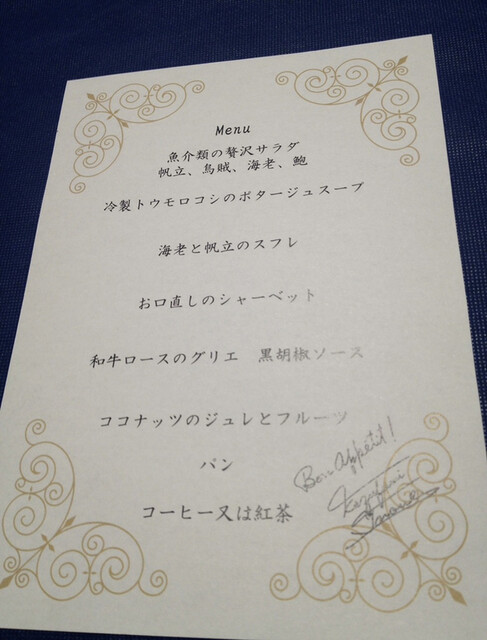 Menu
魚介類の贅沢サラダ
帆立、烏賊、海老、鮑
冷製トウモロコシのポタージュスープ
海老と帆立のスフレ
お口直しのシャーベット
和牛ロースのグリエ　黒胡椒ソース
ココナッツのジュレとフルーツ
パン
コーヒー又は紅茶
Bon appétit!